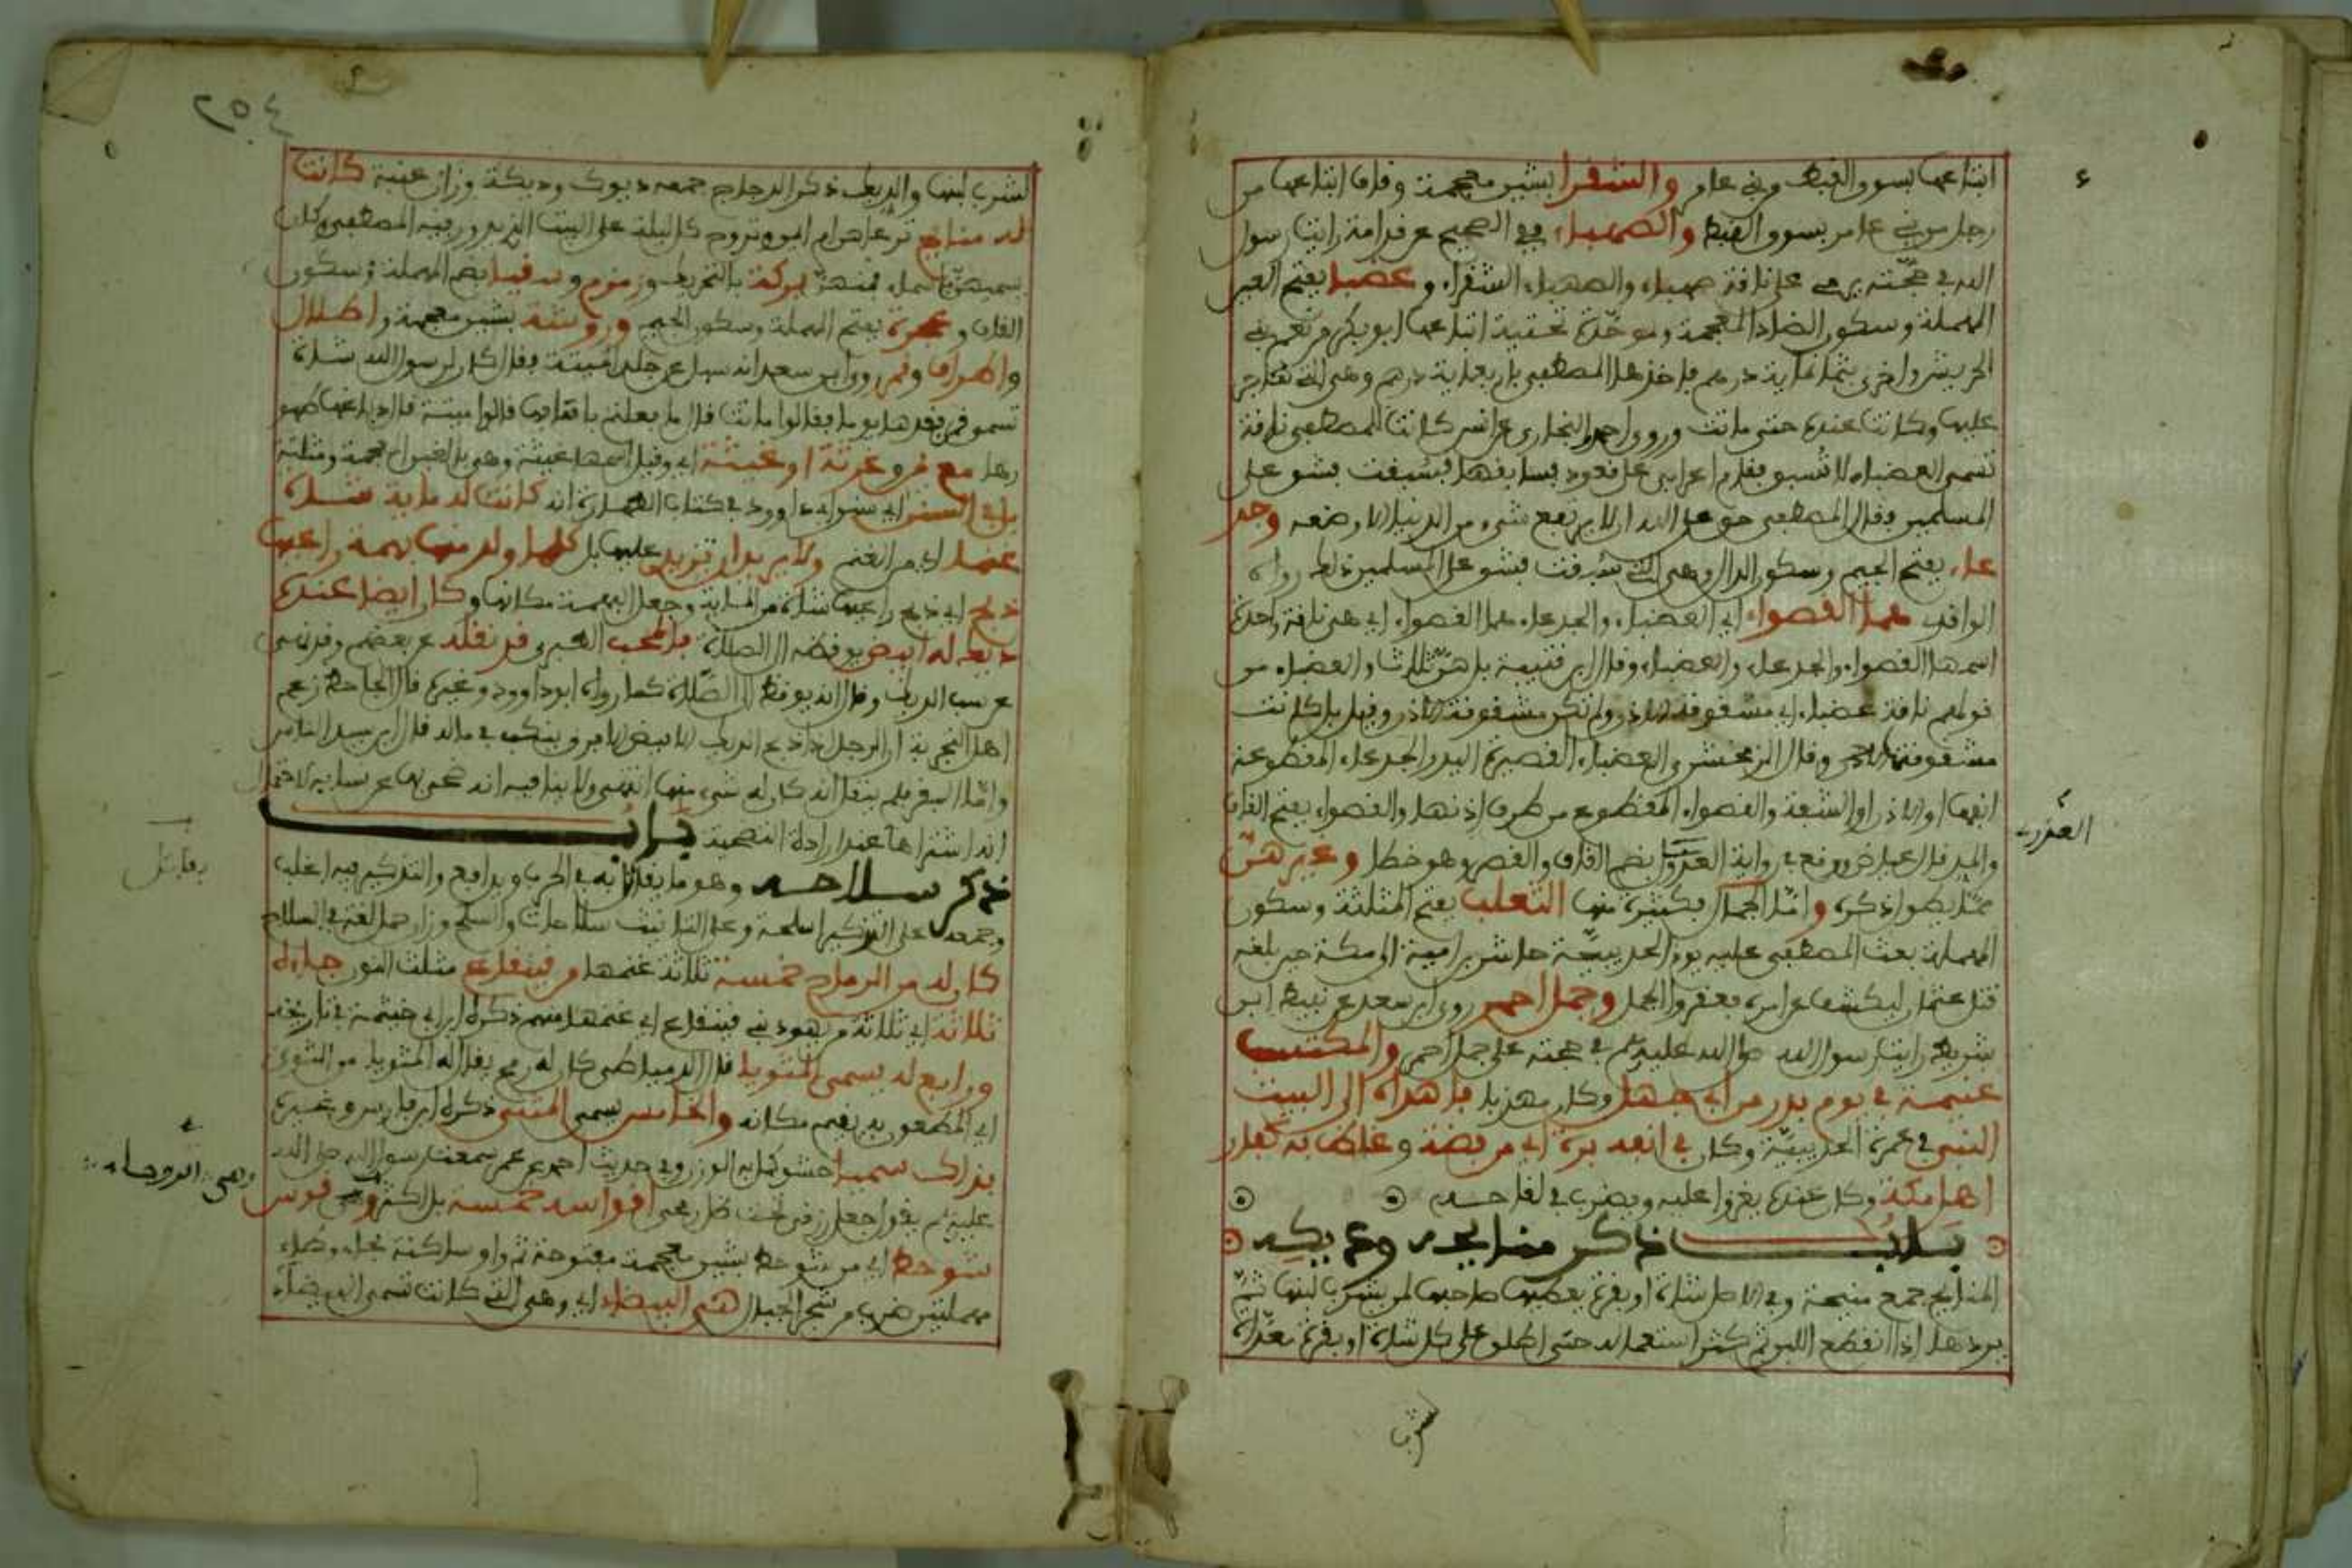 ابتاعها بسوق القبط من بني عامر والشقرا بشين معجمة وقاف ابتاعها من
رجل من بني عامر بسوق القبط والصهباء ففي الصحيح عن قدامة رايت رسول
الله في حجته يرمي على ناقة صهباء والصهباء الشقراء وعضبا بفتح العين
المهملة وسكون الضاد المعجمة وموحدة تحتية ابتاعها ابو بكر من نعم بني
الحريش واخرى بثمانماية درهم فاخذها المصطفى باربعماية درهم وهي التي هاجر
عليها وكانت عنده حتى ماتت وروى احمد والبخاري عن انس كانت للمصطفى ناقة
تسمى العضباء لا تسبق فقدم اعرابي على قعود فسابقها فسبقت فشق على
المسلمين فقال المصطفى حق على الله ان لا يرتفع شيء من الدنيا الا وضعه وجد
عاء بفتح الجيم وسكون الدال وهي التي سبقت فشق على المسلمين ذلك رواه
الواقدي هما القصواء اي العضباء والجدعاء هما القصواء اي هي ناقة واحدة
اسمها القصواء والجدعاء والعضباء وقال ابن قتيبة بل هن ثلاث والعضباء من
قولهم ناقة عضباء اي مشقوقة الاذن ولم تكن مشقوقة الاذن وقيل بل كانت
مشقوقتها وقال الزمخشري العضباء القصيرة اليد والجدعاء المقطوعة
انفها او الاذن او الشفة والقصواء المقطوع من طرف اذنها والقصواء بفتح القاف
والمد قال عياض ووقع في رواية العذري بضم القاف والقصر وهو خطا وغير هن
مما يطول ذكره واما الجمال فكثيرة منها الثعلب بفتح المثلثة وسكون
المهملة بعث المصطفى عليه يوم الحديبية خراش بن امية الى مكة حين بلغه
قتل عثمان ليكشف عن امره فعقروا الجمل وجمل احمر روى ابن سعد عن نبيط ابن
شريط رايت رسول الله صلى الله عليه وسلم في حجته على جمل احمر والمكتسب
غنيمة في يوم بدر من ابي جهل وكان مهريا فاهداه الى البيت
النبي في عمرة الحديبية وكان في انفه برة اي من فضة وغاظ به كفار
اهل مكة وكان عنده يغزوا عليه ويضرب في لقاحه
باب ذكر منايحه وديكه
المنايح جمع منيحة وهي في الاصل شاة او بقرة يعطيها صاحبها لمن يشرب لبنها ثم
يردها اذا انقطع اللبن ثم كثر استعماله حتى اطلق على كل شاة او بقرة معدة
لشرب
العذري
٢٥٤
لشرب لبنها والديك ذكر الدجاج جمعه ديوك وديكة وزان عنبة كانت
له منايح ترعاهن ام ايمن وتروح كل ليلة على البيت الذي يدور فيه المصطفى وكان
يسميهن باسماء فمنهن بركة بالتحريك وزمزم وسقيا بضم المهملة وسكون
القاف وعجرة بفتح المهملة وسكون الجيم وورسة بشين معجمة واطلال
واطراف وقمر روى ابن سعد انه سيل عن جلد الميتة فقال كان لرسول الله شاة
تسمى قمر ففقدها يوما فقالوا ماتت قال ما فعلتم باهابها قالوا ميتة قال دباغها طهو
رها مع غوثة او غيثة اي وقيل اسمها غيثة وهي بالغين المعجمة ومثلثة
بل في السنن اي سنن ابي داوود في كتاب الطهارة انه كانت له ماية شاة
غنما اي من الغنم ولا يريد ان تزيد عليها بل كلما ولد منها بهمة راعيها
ذبح اي ذبح راعيها شاة من الماية وجعل البهمة مكانها وكان ايضا عنده
ديك له ابيض يوقضه الى الصلاة فالمحب الطبري قد نقله عن بعضهم وقد نهى
عن سب الديك وقال انه يوقظ الى الصلاة كما رواه ابو داوود وغيره قال الجاحظ زعم
اهل التجربة ان الرجل اذا ذبح الديك الابيض الافرق ينكب في ماله قال ابن سيد الناس
واما البقر فلم ينقل انه كان له شيء منها انتهى ولا ينافيه انه ضحى بها عن نسايه لاحتمال
انه اشتراها عند ارادة التضحية باب
ذكر سلاحه وهو ما يقاتل به في الحرب ويدافع والتذكير فيه اغلب
وجمعه على التذكير اسلحة وعلى التانيث سلاحات والسلح وزان حمل لغة في السلاح
كان له من الرماح خمسة ثلاثة غنمها من قينقاع مثلث النون جاءه
ثلاثة اي ثلاثة من يهود بني قينقاع اي غنمها منهم ذكره ابن ابي خيثمة في تاريخه
ورابع له يسمى المثويا قال الدمياطي كان له رمح يقال له المثويا من الثوى
اي المطعون به يقيم مكانه والخامس يسمى المثنى ذكره ابن فارس وغيره
بذاك سميا حشو كما به الوزن وفي حديث احمد عن عمر سمعت رسول الله صلى الله
عليه وسلم يقول جعل رزقي تحت ظل رمحي اقواسه خمسة بل اكثر وهي قوس
شوحط اي من شوحط بشين معجمة مفتوحة ثم واو ساكنة فحاء وطاء
مهملتين ضرب من شجر الجبال هي البيضاء اي وهي التي كانت تسمى البيضاء
وهي الروحاء